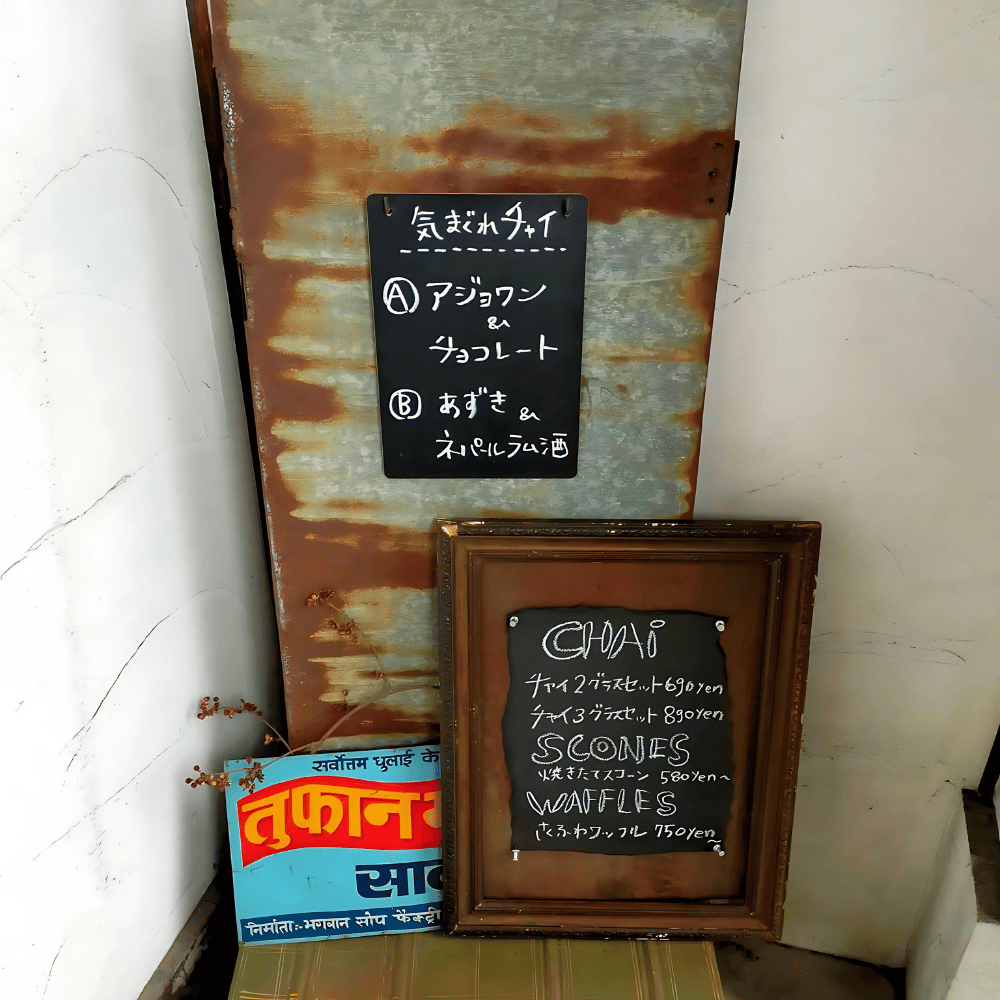 気まぐれチャイ
Ⓐ アジョワン
&
チョコレート
Ⓑ あずき &
ネパールラム酒
CHAi
チャイ2グラスセット690yen
チャイ3グラスセット 890yen
SCONES
焼きたてスコーン 580yen~
WAFFLES
さくふわワッフル 750yen~
सर्वोत्तम धुलाई के
तुफान
निर्माता:-भगवान सोप फैक्ट्री